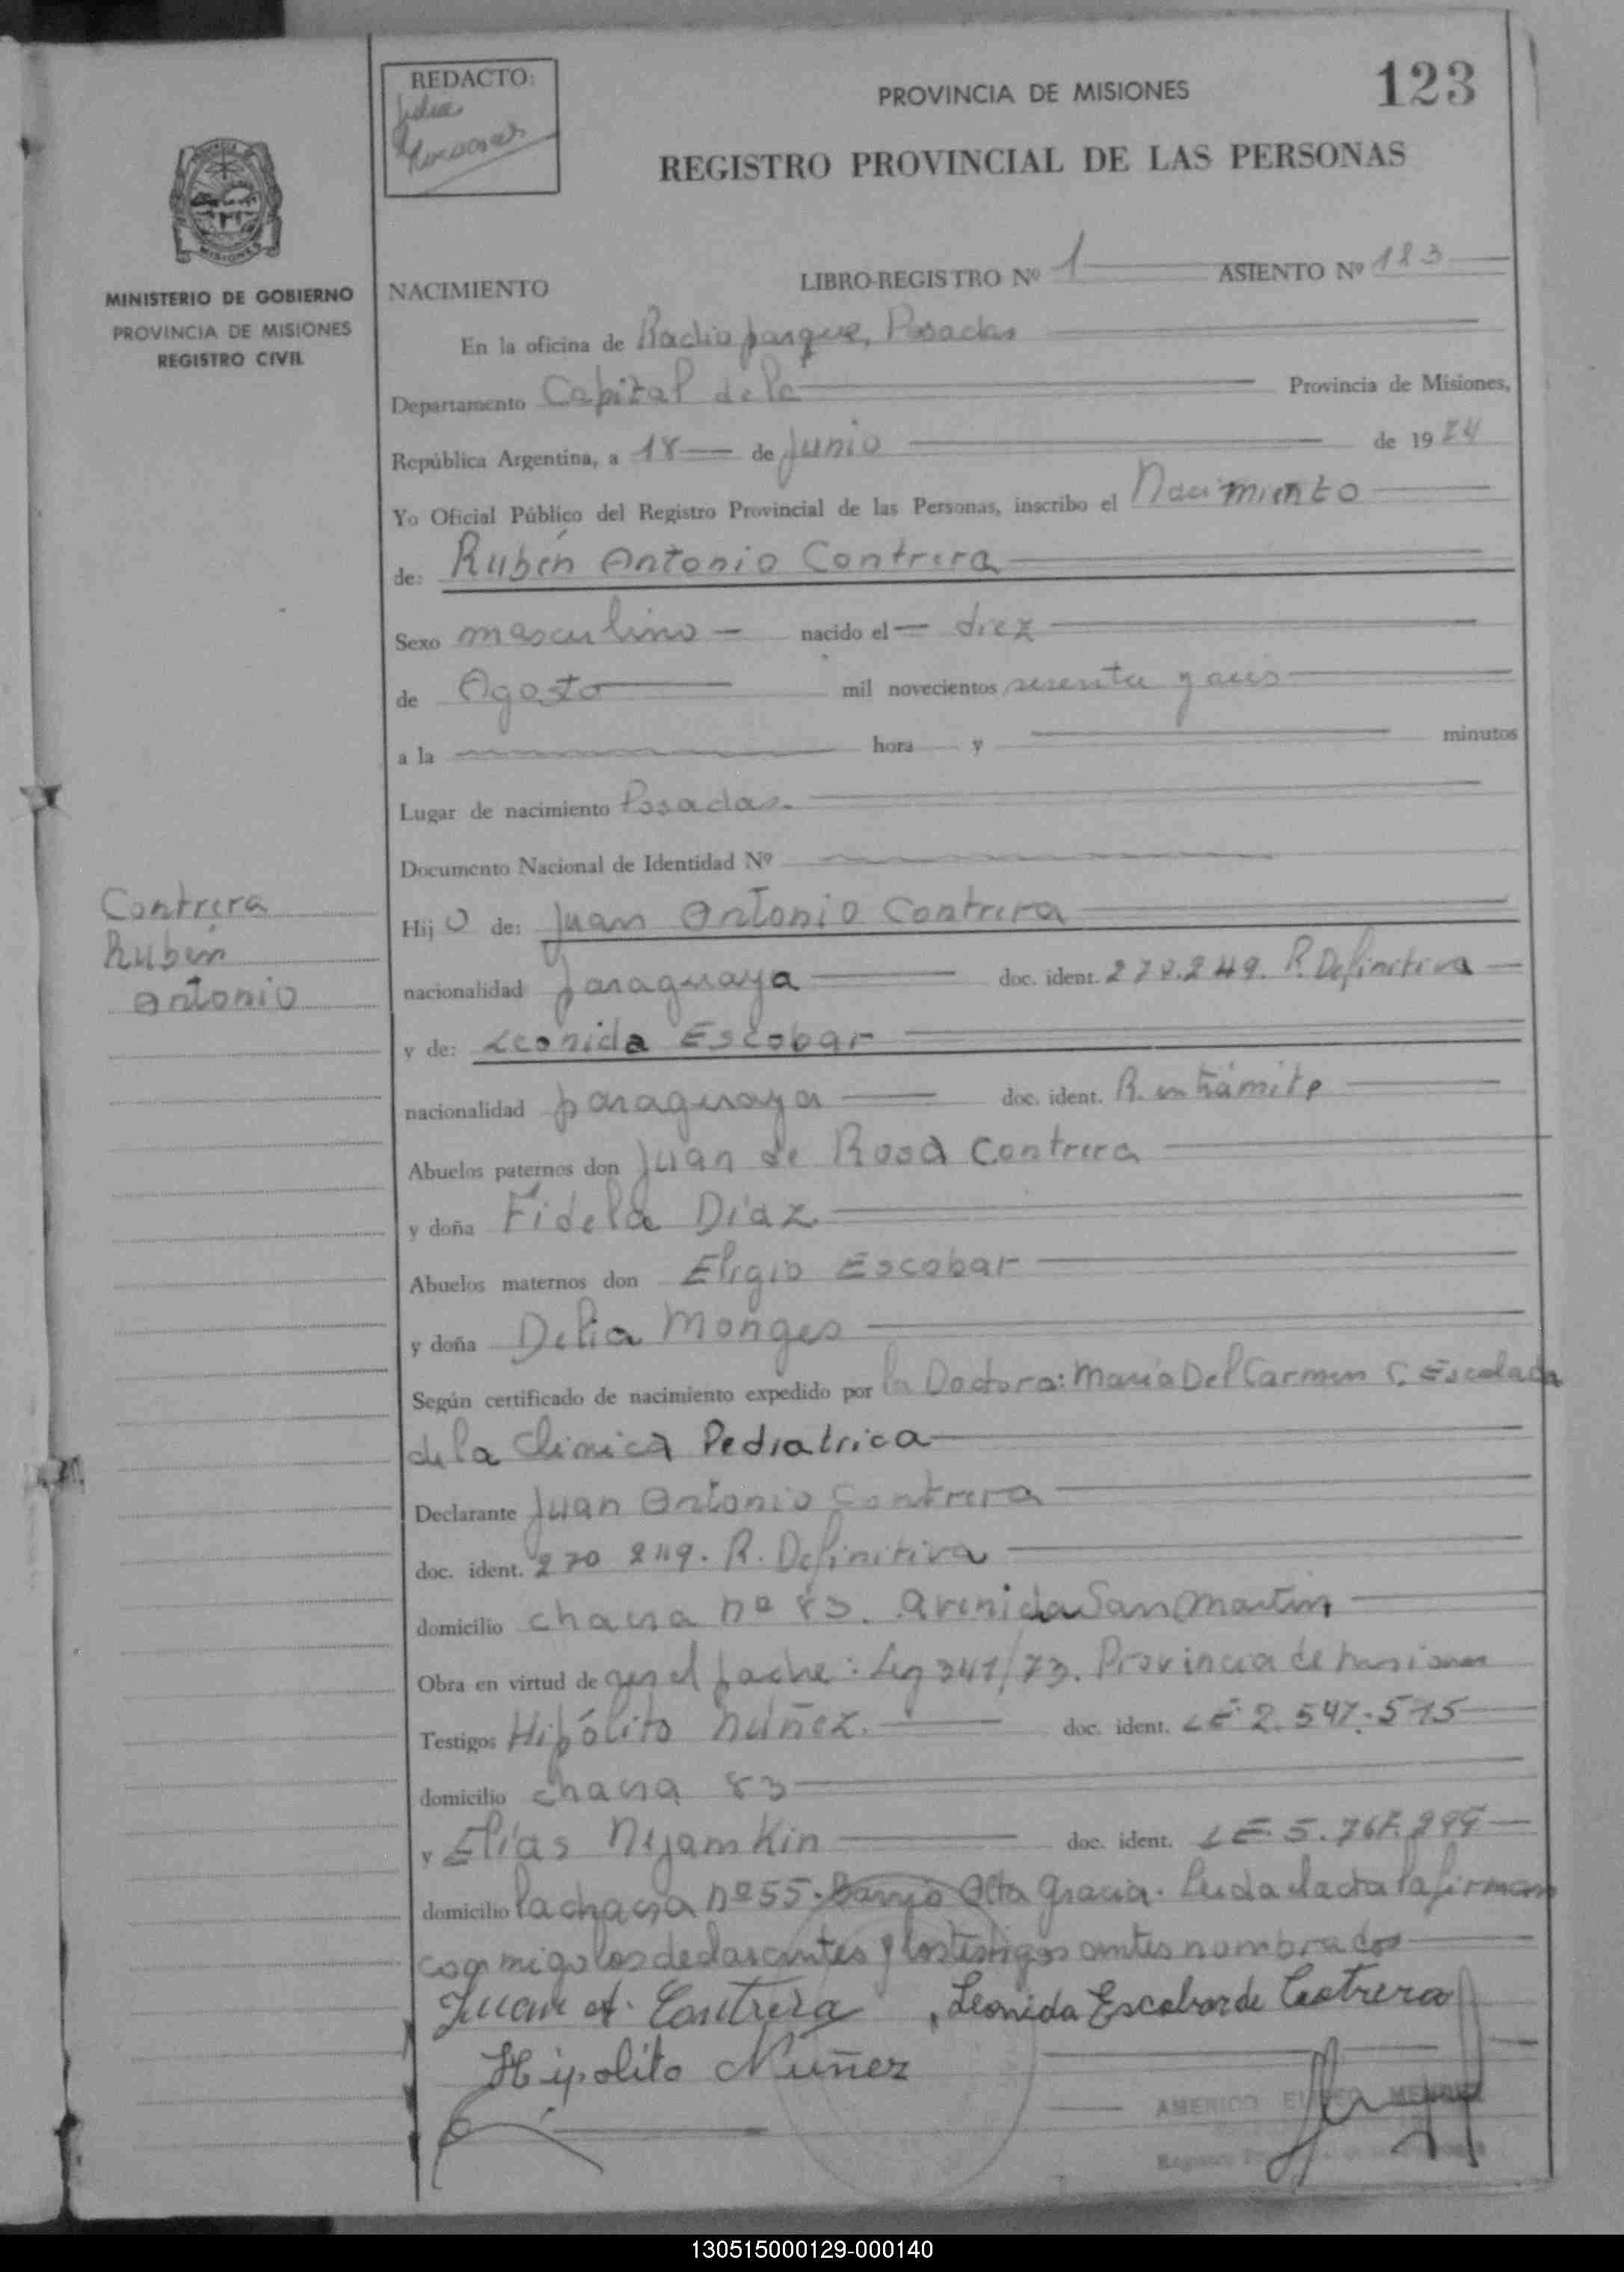 REDACTO:
PROVINCIA DE MISIONES
123
REGISTRO PROVINCIAL DE LAS PERSONAS
MISIONES
MINISTERIO DE GOBIERNO
PROVINCIA DE MISIONES
REGISTRO CIVIL
NACIMIENTO LIBRO-REGISTRO Nº 1 ASIENTO Nº 123
En la oficina de Radio parque, Posadas
Departamento Capital de la Provincia de Misiones,
República Argentina, a 18 de Junio de 19
Yo Oficial Público del Registro Provincial de las Personas, inscribo el Nacimiento
de: Rubén Antonio Contrera
Sexo masculino nacido el diez
de Agosto mil novecientos sesenta y seis
a la hora y minutos
Lugar de nacimiento Posadas.
Documento Nacional de Identidad Nº
Contrera
Rubén
Antonio
Hijo de: Juan Antonio Contrera
nacionalidad paraguaya doc. ident. 270.249. R. Definitiva
y de: Leonida Escobar
nacionalidad paraguaya doc. ident. R. en trámite
Abuelos paternos don Juan de Rosa Contrera
y doña Fidela Díaz
Abuelos maternos don Eligio Escobar
y doña Delia Monges
Según certificado de nacimiento expedido por la Doctora: María Del Carmen C. Escalada
de la Clinica Pediatrica
Declarante Juan Antonio Contrera
doc. ident. 270 249. R. Definitiva
domicilio chacra nº 83. avenida San Martin
Obra en virtud de ser el padre: Ley 341/73. Provincia de Misiones
Testigos Hipólito Núñez. doc. ident. LE 2.547.515
domicilio chacra 83
y Elías Nijamkin doc. ident. LE. 5.767.299
domicilio la chacra nº 55. Barrio Alta Gracia. Leida el acta la firman
conmigo los declarantes y los testigos antes nombrados
Juan A. Contrera Leonida Escobar de Contrera
Hipolito Nuñez
AMERICO ELISEO MENDEZ
130515000129-000140